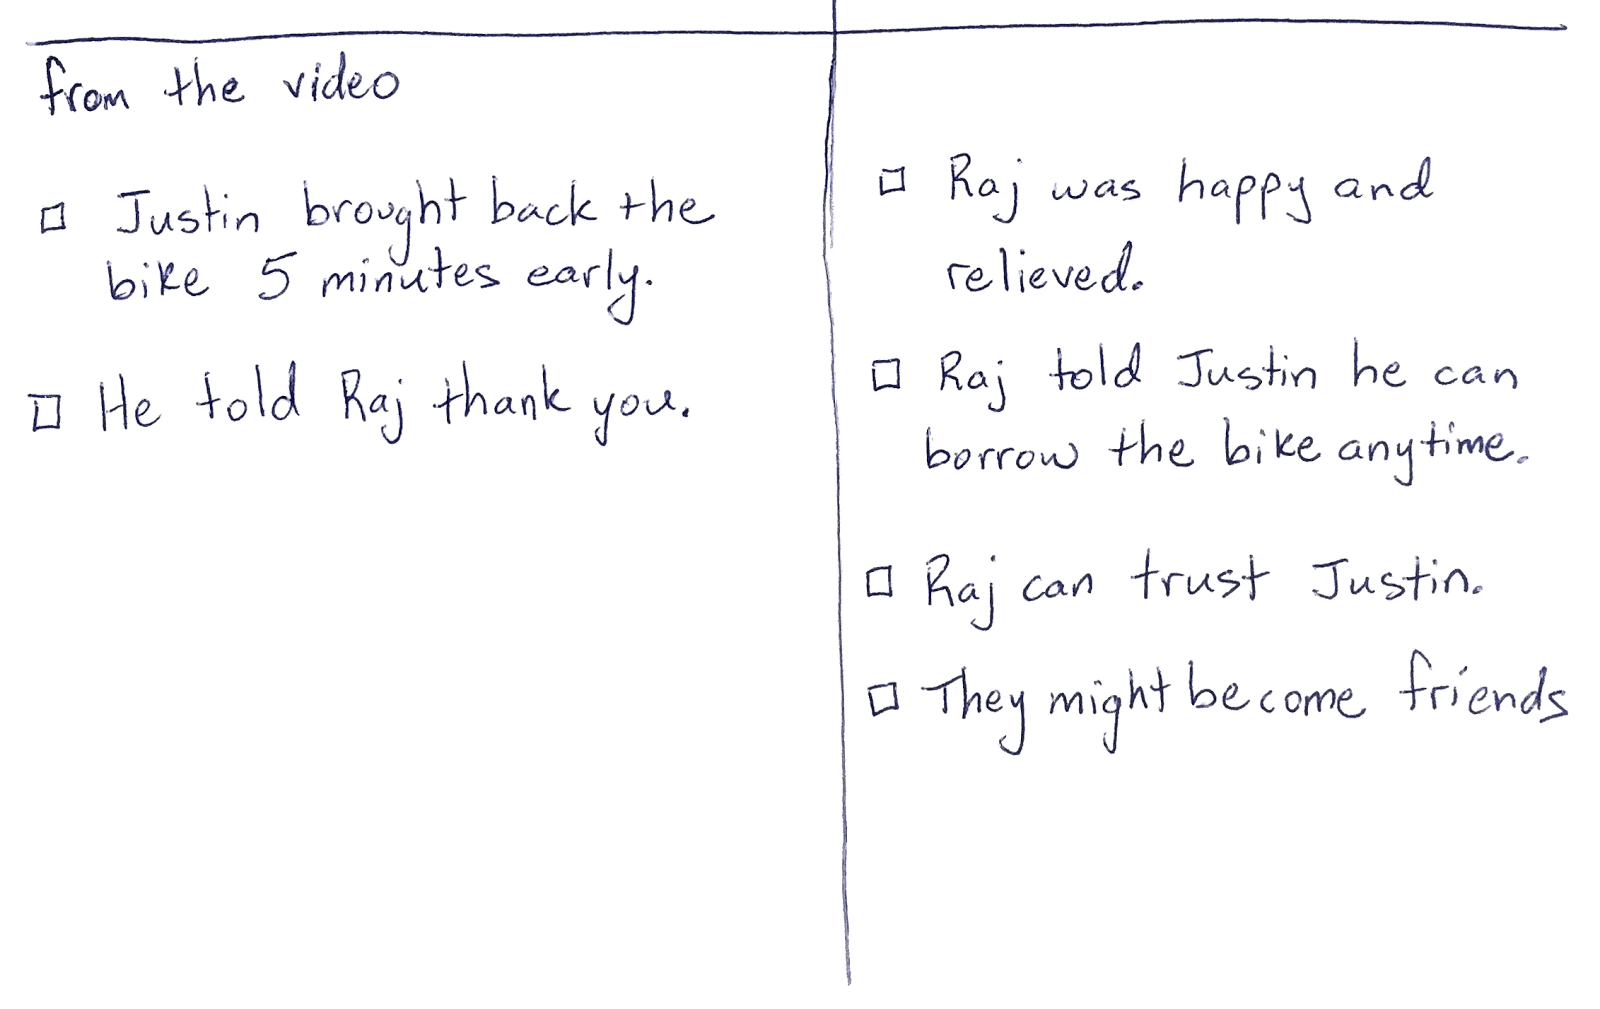 from the video
□ Justin brought back the
bike 5 minutes early.
□ He told Raj thank you.
□ Raj was happy and
relieved.
□ Raj told Justin he can
borrow the bike anytime.
□ Raj can trust Justin.
□ They might become friends